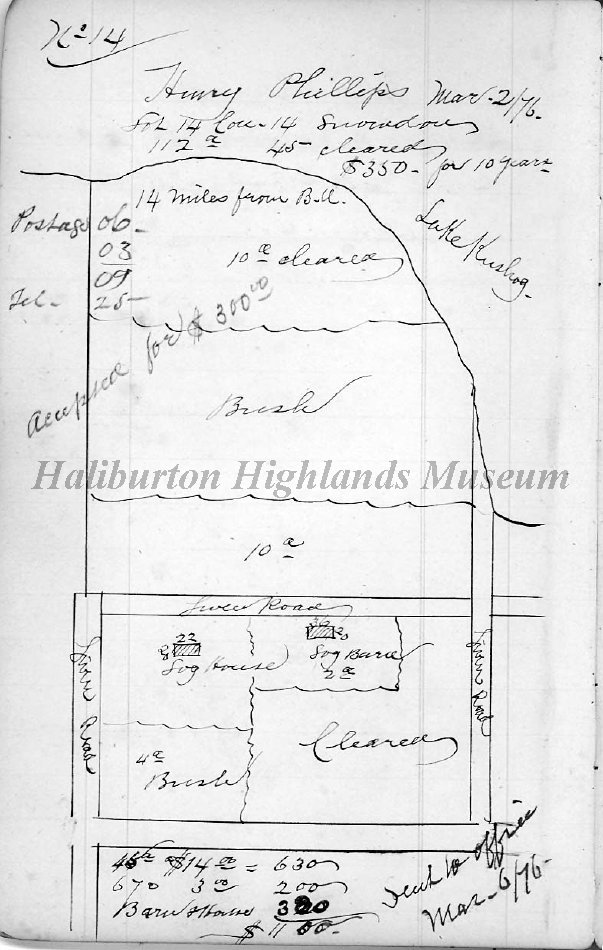 No 14
Henry Phillips Mar-2/76-
Lot 14 Con-14 Snowdon
112 a 45- cleared
$350- for 10 years
14 miles from B.M.
Postage 06-
03
09
Tel- 25-
10 a cleared
Lake Kushog-
for $300 00
Bush
Haliburton Highlands Museum
10 a
Road
22
Log House
Log Barn
2 a
Road
Road
4 a
Bush
Cleared
45 a $14 00 = 630
67 3 00 200
Barn & House 320
$11
Sent to office
Mar-6/76-